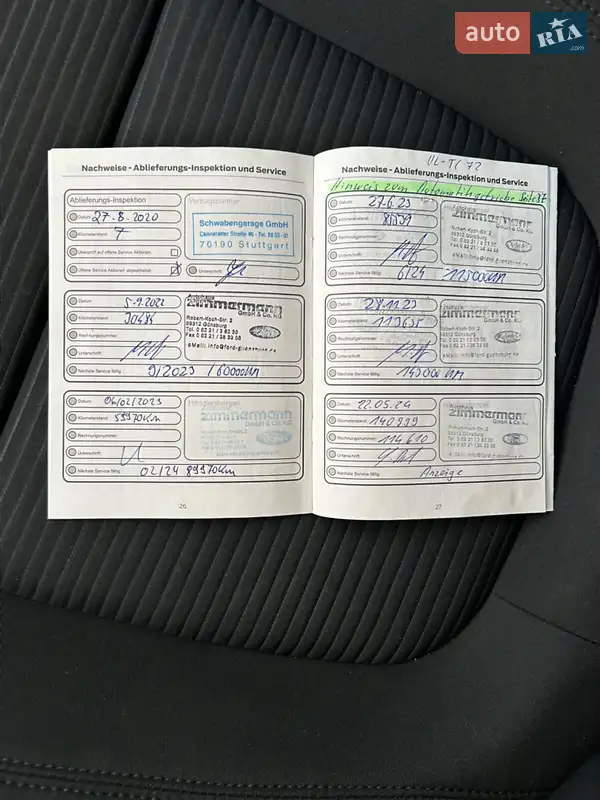 auto RIA .com
UL-TC 72
Nachweise - Ablieferungs-Inspektion und Service
Ablieferungs-Inspektion
Vertragspartner
Datum 27.8.2020
Kilometerstand 7
Überprüft auf offene Service Aktionen
Offene Service Aktionen abgearbeitet
Unterschrift
Schwabengarage GmbH
Cannstatter Straße 46 - Tel.
70190 Stuttgart
Datum 5.9.2022
Kilometerstand 30484
Rechnungsnummer
Unterschrift
Nächste Service fällig 9/2023 / 60000km
zimmermann
GmbH & Co. KG
Robert-Koch-Str. 2
89312 Günzburg
Tel. 0 82 21 / 3 63 30
Fax 0 82 21 / 36 33 58
eMail: info@ford-guenzburg.de
Datum 06/02/2023
Kilometerstand 59970km
Rechnungsnummer
Unterschrift
Nächste Service fällig 02/24 89970km
zimmermann
GmbH & Co. KG
26
Nachweise - Ablieferungs-Inspektion und Service
Hinweis zum Automatikgetriebe Seite 37
Datum 27.6.23
Kilometerstand
Rechnungsnummer
Unterschrift
Nächste Service fällig 6/24 115000km
zimmermann
GmbH & Co. KG
Robert-Koch-Str. 2
89312 Günzburg
Datum 28.11.23
Kilometerstand 113635
Rechnungsnummer
Unterschrift
Nächste Service fällig 143000 km
zimmermann
GmbH & Co. KG
Robert-Koch-Str. 2
89312 Günzburg
Datum 22.05.24
Kilometerstand 140999
Rechnungsnummer 114610
Unterschrift
Nächste Service fällig Anzeige
zimmermann
GmbH & Co. KG
Robert-Koch-Str. 2
89312 Günzburg
27